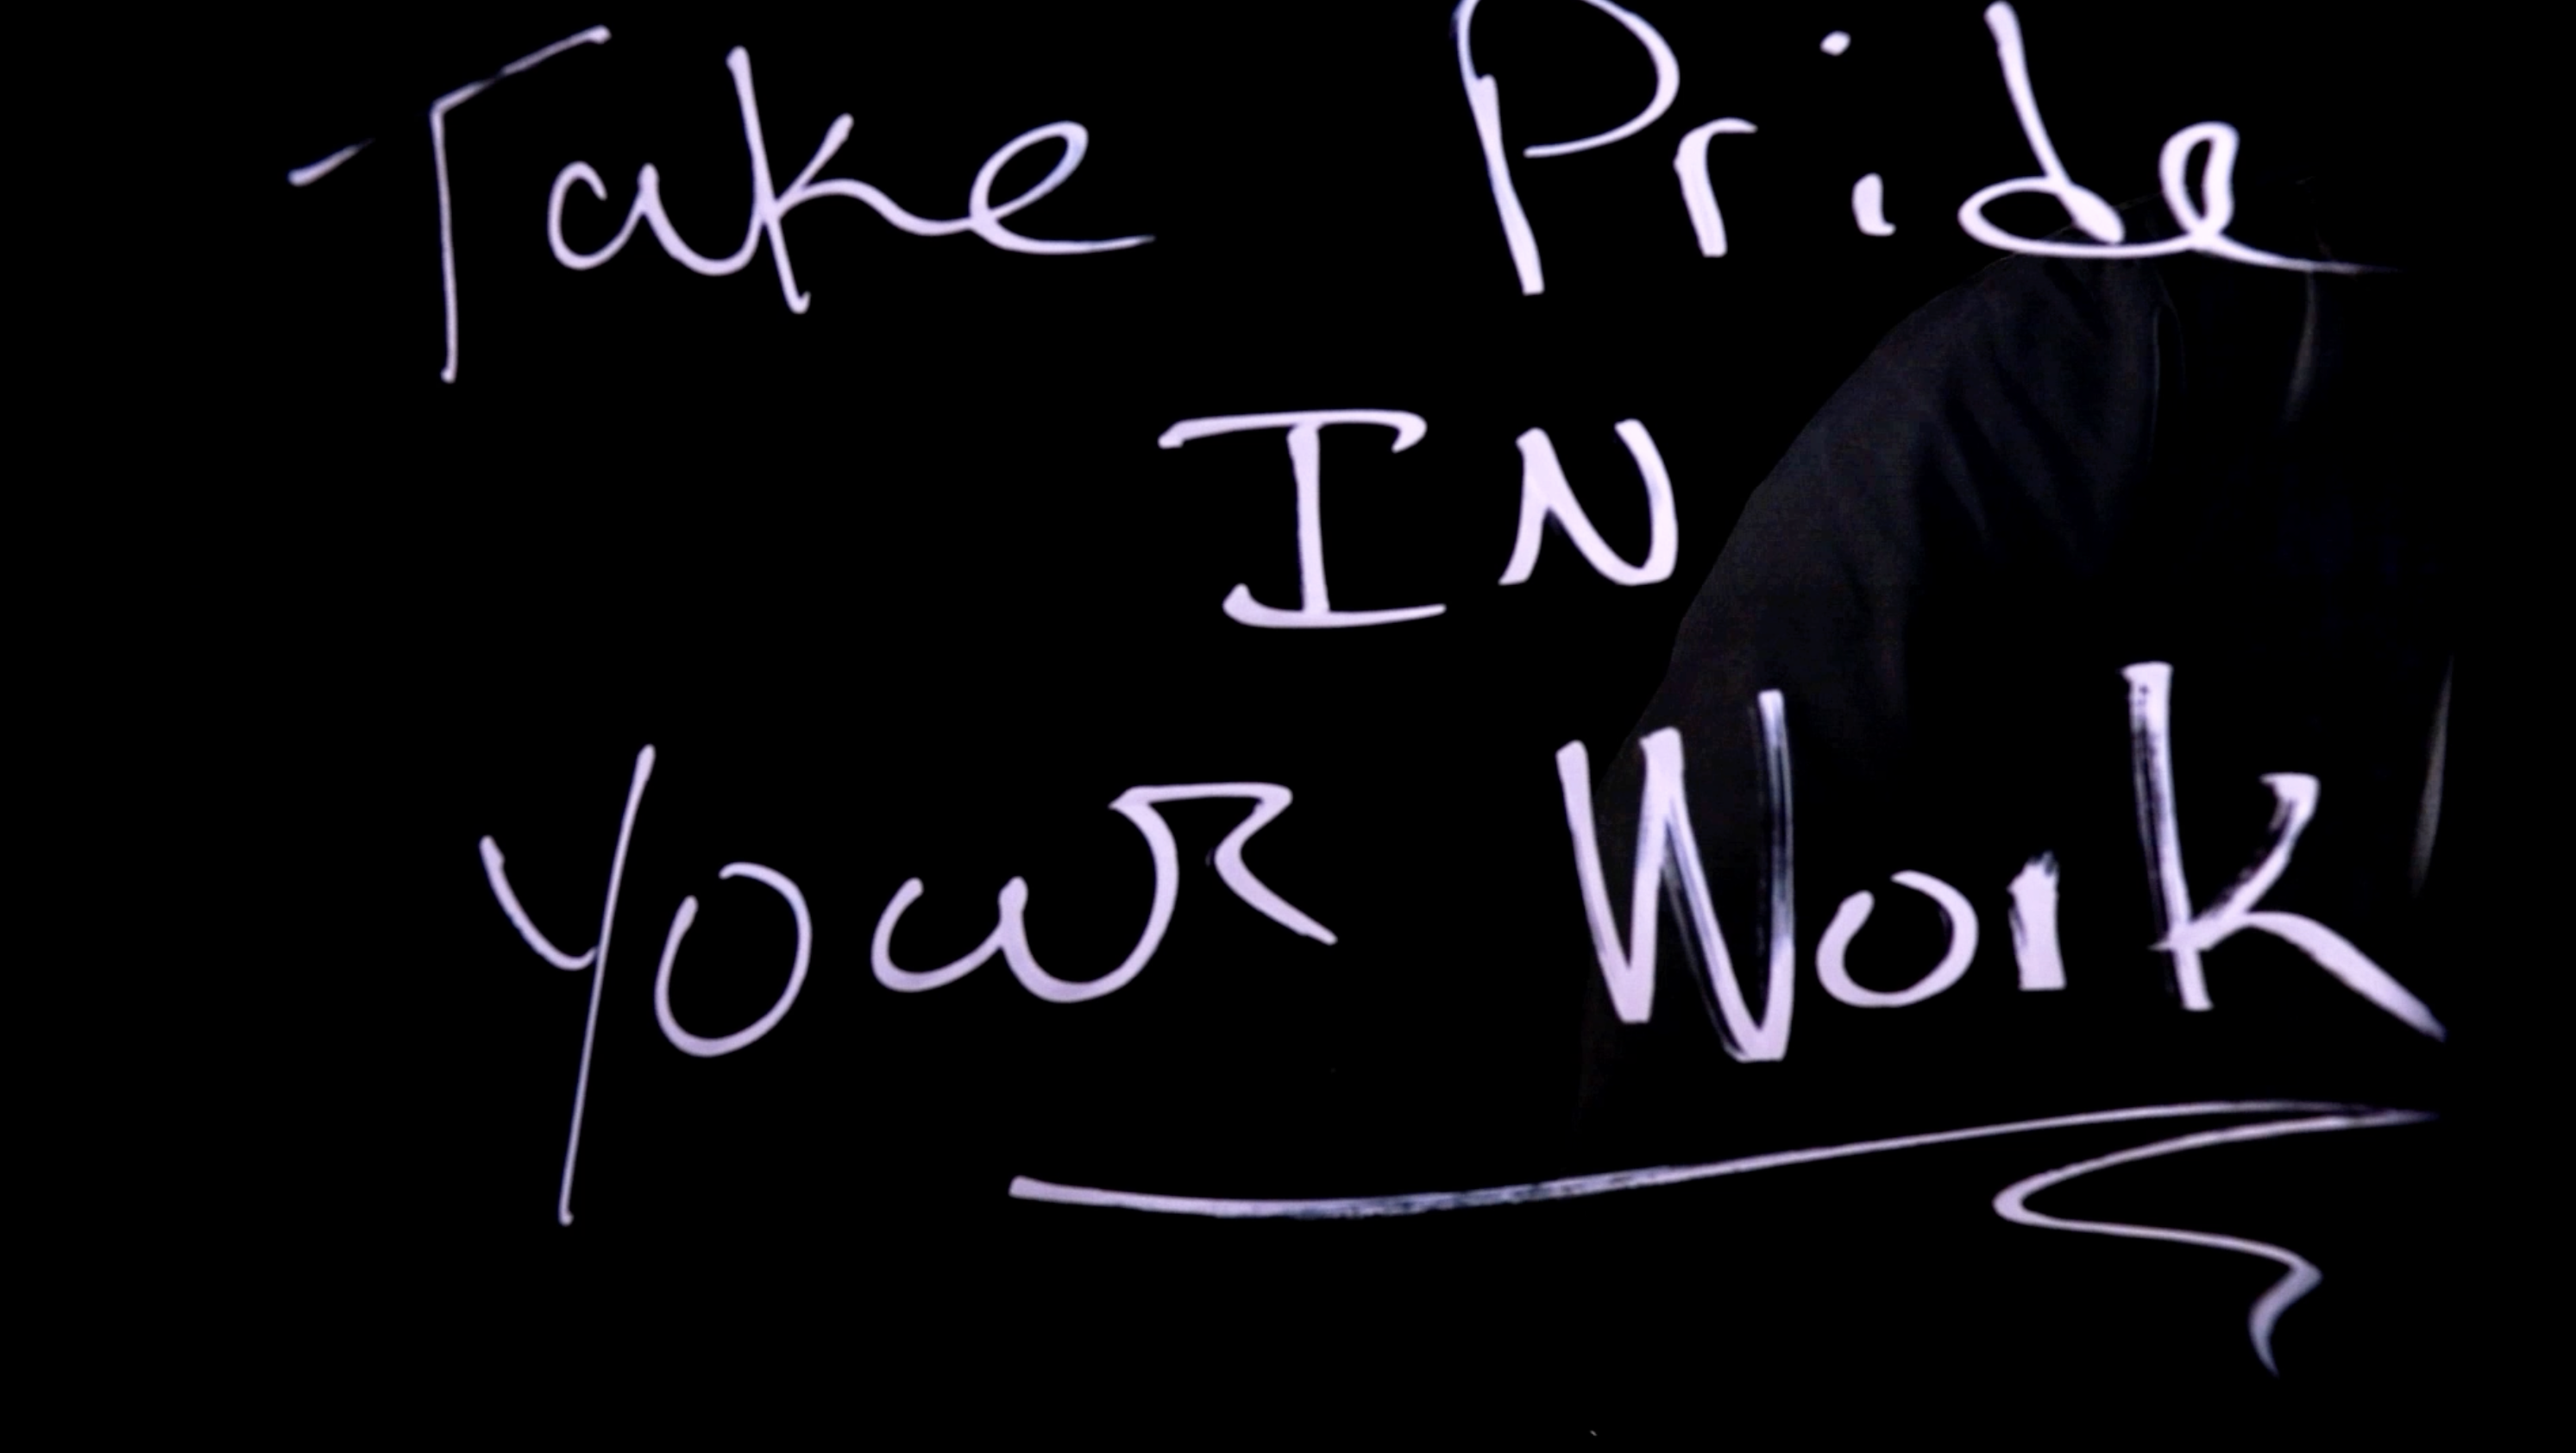 Take Pride
IN
Your Work